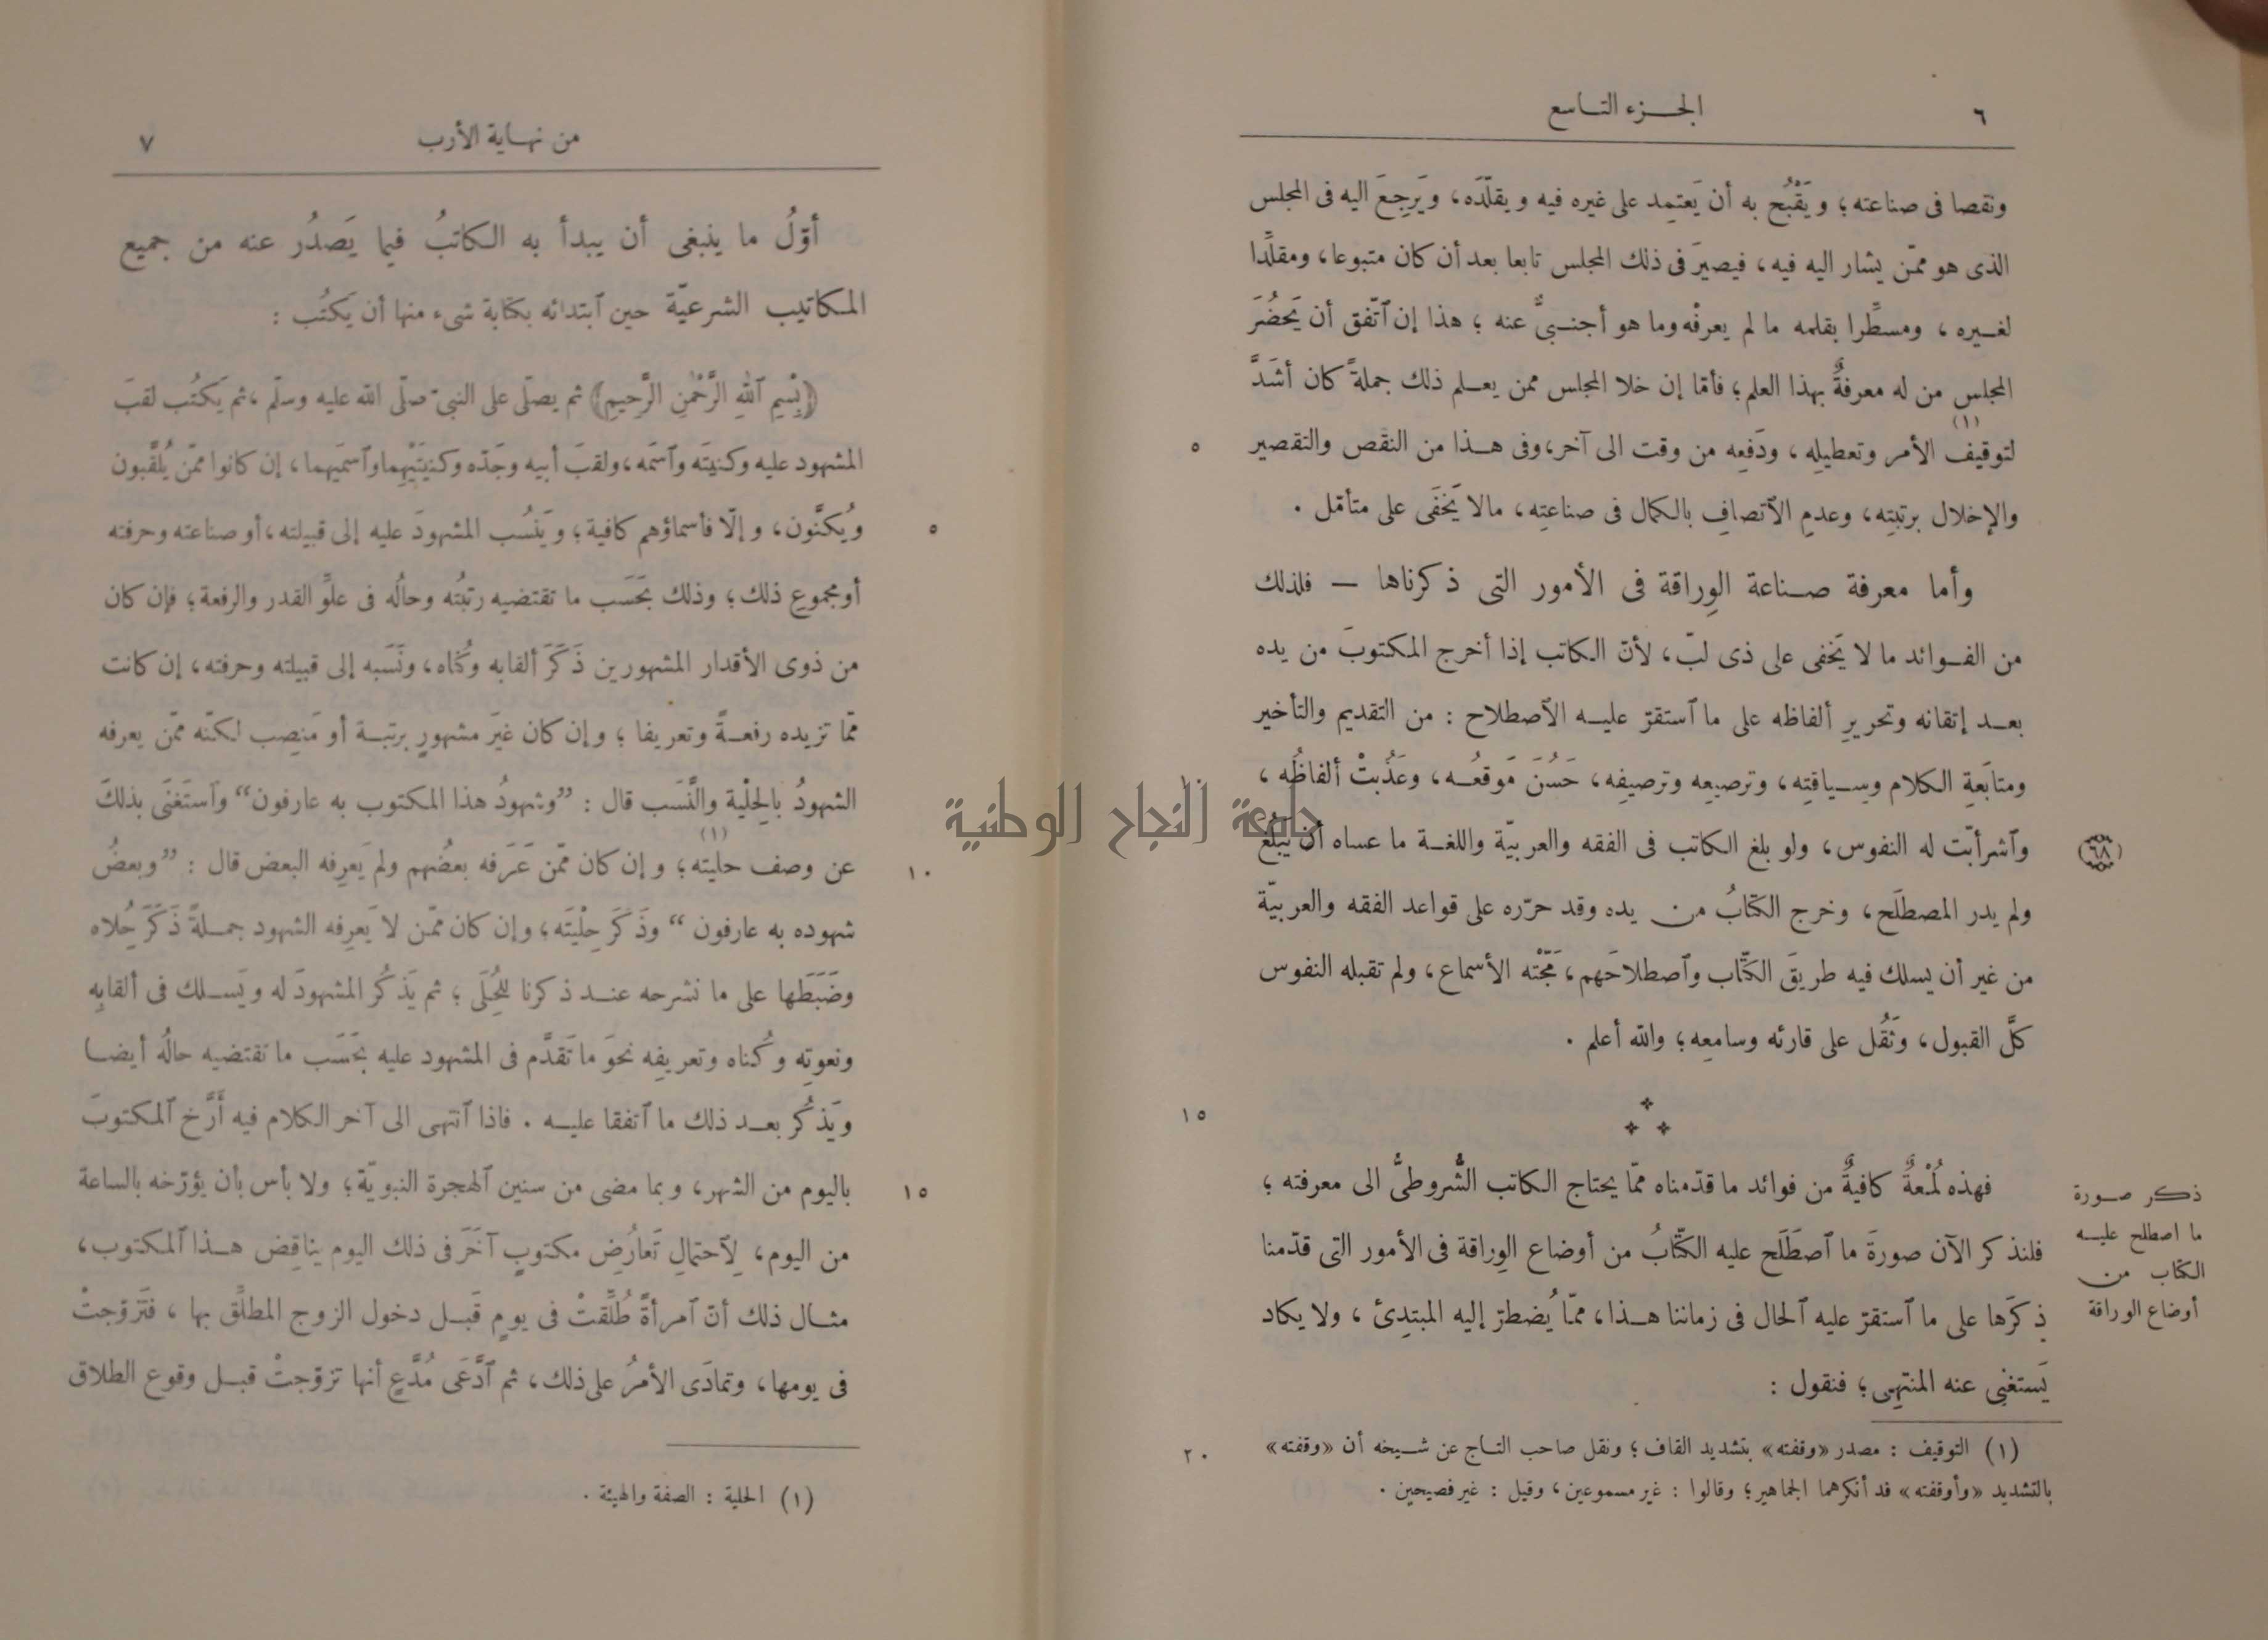 ٦
الجـــزء التـاسع
ونقصا فى صناعته؛ ويَقْبُح به أن يَعتمِد على غيره فيه ويقلّدَه، ويَرجِعَ اليه فى المجلس
الذى هو ممّن يشار اليه فيه، فيصيرَ فى ذلك المجلس تابعا بعد أن كان متبوعا، ومقلِّدا
لغـيره، ومسطِّرا بقلمه ما لم يعرفْه وما هو أجنـبىٌّ عنه؛ هذا إن ٱتّفق أن يَحضُرَ
المجلس من له معرفةٌ بهذا العلم؛ فأمّا إن خلا المجلس ممن يعـلم ذلك جملةً كان أشَدَّ
لتوقيف (١) الأمر وتعطيلِه، ودَفعِه من وقت الى آخر، وفى هـذا من النقص والتقصير
٥
والإخلال برتبتِه، وعدمِ الٱتصافِ بالكمال فى صناعتِه، مالا يَخفَى على متأمّل.
وأما معرفة صـناعة الوِراقة فى الأمور التى ذكرناها — فلذلك
من الفـوائد ما لا يَخفى على ذى لبّ، لأنّ الكاتب إذا أخرج المكتوبَ من يده
بعـد إتقانه وتحريرِ ألفاظه على ما ٱستقرّ عليـه الٱصطلاح : من التقديم والتأخير
ومتابَعةِ الكلام وسـياقتِه، وترصيعِه وترصيفِه، حَسُنَ مَوقعُـه، وعَذُبتْ ألفاظُه،
وٱشرأبّت له النفوس، ولو بلغ الكاتب فى الفقه والعربيّة واللغـة ما عساه أن يَبلُغ
٦٨
ولم يدر المصطلَح، وخرج الكتابُ من يده وقد حرّره على قواعد الفقه والعربيّة
من غير أن يسلك فيه طريقَ الكتّاب وٱصطلاحَهم، مَجّتْه الأسماع، ولم تقبله النفوس
كلَّ القبول، وثَقُل على قارئه وسامعِه؛ والله أعلم.
١٥
فهذه لُمْعةٌ كافيةٌ من فوائد ما قدّمناه ممّا يحتاج الكاتب الشُّروطىُّ الى معرفته؛
فلنذكر الآن صورةَ ما ٱصطَلَح عليه الكتّابُ من أوضاع الوِراقة فى الأمور التى قدّمنا
ذِكرَها على ما ٱستقرّ عليه ٱلحال فى زماننا هـذا، ممّا يُضطرّ إليه المبتدِئ، ولا يكاد
يَستغنِى عنه المنتهِى؛ فنقول :
ذكر صـورة
ما اصطلح عليـه
الكتّاب من
أوضاع الوراقة
(١) التوقيف : مصدر «وقفته» بتشديد القاف؛ ونقل صاحب التـاج عن شـيخه أن «وقفته»
٢٠
بالتشديد «وأوقفته» قد أنكرهما الجماهير؛ وقالوا : غير مسموعين، وقيل : غير فصيحين.
من نهـاية الأرب
٧
أوّلُ ما ينبغى أن يبدأ به الكاتبُ فيما يَصدُر عنه من جميع
المكاتيب الشرعيّة حين ٱبتدائه بكتابة شىء منها أن يَكتُب :
﴿بِسْمِ ٱللهِ الرَّحْمٰنِ الرَّحِيمِ﴾ ثم يصلّى على النبىّ صلّى الله عليه وسلّم، ثم يَكتُب لقبَ
المشهود عليه وكنيتَه وٱسمَه، ولقبَ أبيه وجَدّه وكنيتَيْهِما وٱسمَيهما، إن كانوا ممّن يُلقَّبون
ويُكنَّون، وإلّا فأسماؤهم كافية؛ ويَنسُب المشهودَ عليه إلى قبيلته، أو صناعته وحرفته
٥
أو مجموعِ ذلك؛ وذلك بحَسَب ما تقتضيه رتبتُه وحالُه فى علوِّ القدر والرفعة؛ فإن كان
من ذوى الأقدار المشهورين ذَكَرَ ألقابه وكُناه، ونَسَبه إلى قبيلته وحرفته، إن كانت
ممّا تزيده رفعـةً وتعريفا؛ وإن كان غيَر مشهورٍ برتبـة أو مَنصِب لكنّه ممّن يعرفه
الشهودُ بالحِلْية والنَّسَب قال : ”وشهودُ هذا المكتوب به عارفون“ وٱستَغنَى بذلكَ
عن وصف حليته (١)؛ وإن كان ممّن عَرَفه بعضُهم ولم يَعرِفه البعض قال : ”وبعضُ
١٠
شهوده به عارفون“ وذَكَرَ حِلْيتَه؛ وإن كان ممّن لا يَعرِفه الشهود جمـلةً ذَكَرَ حُلاه
وضَبَطَها على ما نشرحه عنـد ذكرنا للحُلَى؛ ثم يَذكُر المشهودَ له ويَسـلك فى ألقابِه
ونعوتِه وكُناه وتعريفِه نحوَ ما تَقدَّم فى المشهود عليه بحَسَب ما تقتضيه حالُه أيضـا
ويَذكُر بعـد ذلك ما ٱتفقا عليـه. فاذا ٱنتهى الى آخر الكلام فيه أَرَّخ ٱلمكتوبَ
باليوم من الشهر، وبما مضى من سنين ٱلهجرة النبويّة؛ ولا بأس بأن يؤرّخه بالساعة
١٥
من اليوم، لِٱحتمالِ تَعارُضِ مكتوبٍ آخَرَ فى ذلك اليوم يناقِض هـذا ٱلمكتوب،
مثـال ذلك أنّ ٱمرأةً طُلِّقتْ فى يومٍ قَبـل دخول الزوج المطلِّق بها، فتَزوّجتْ
فى يومها، وتمادَى الأمرُ على ذلك، ثم ٱدَّعَى مُدَّعٍ أنها تزوّجتْ قبـل وقوع الطلاق
(١) الحلية : الصفة والهيئة.
جامعة النجاح الوطنية